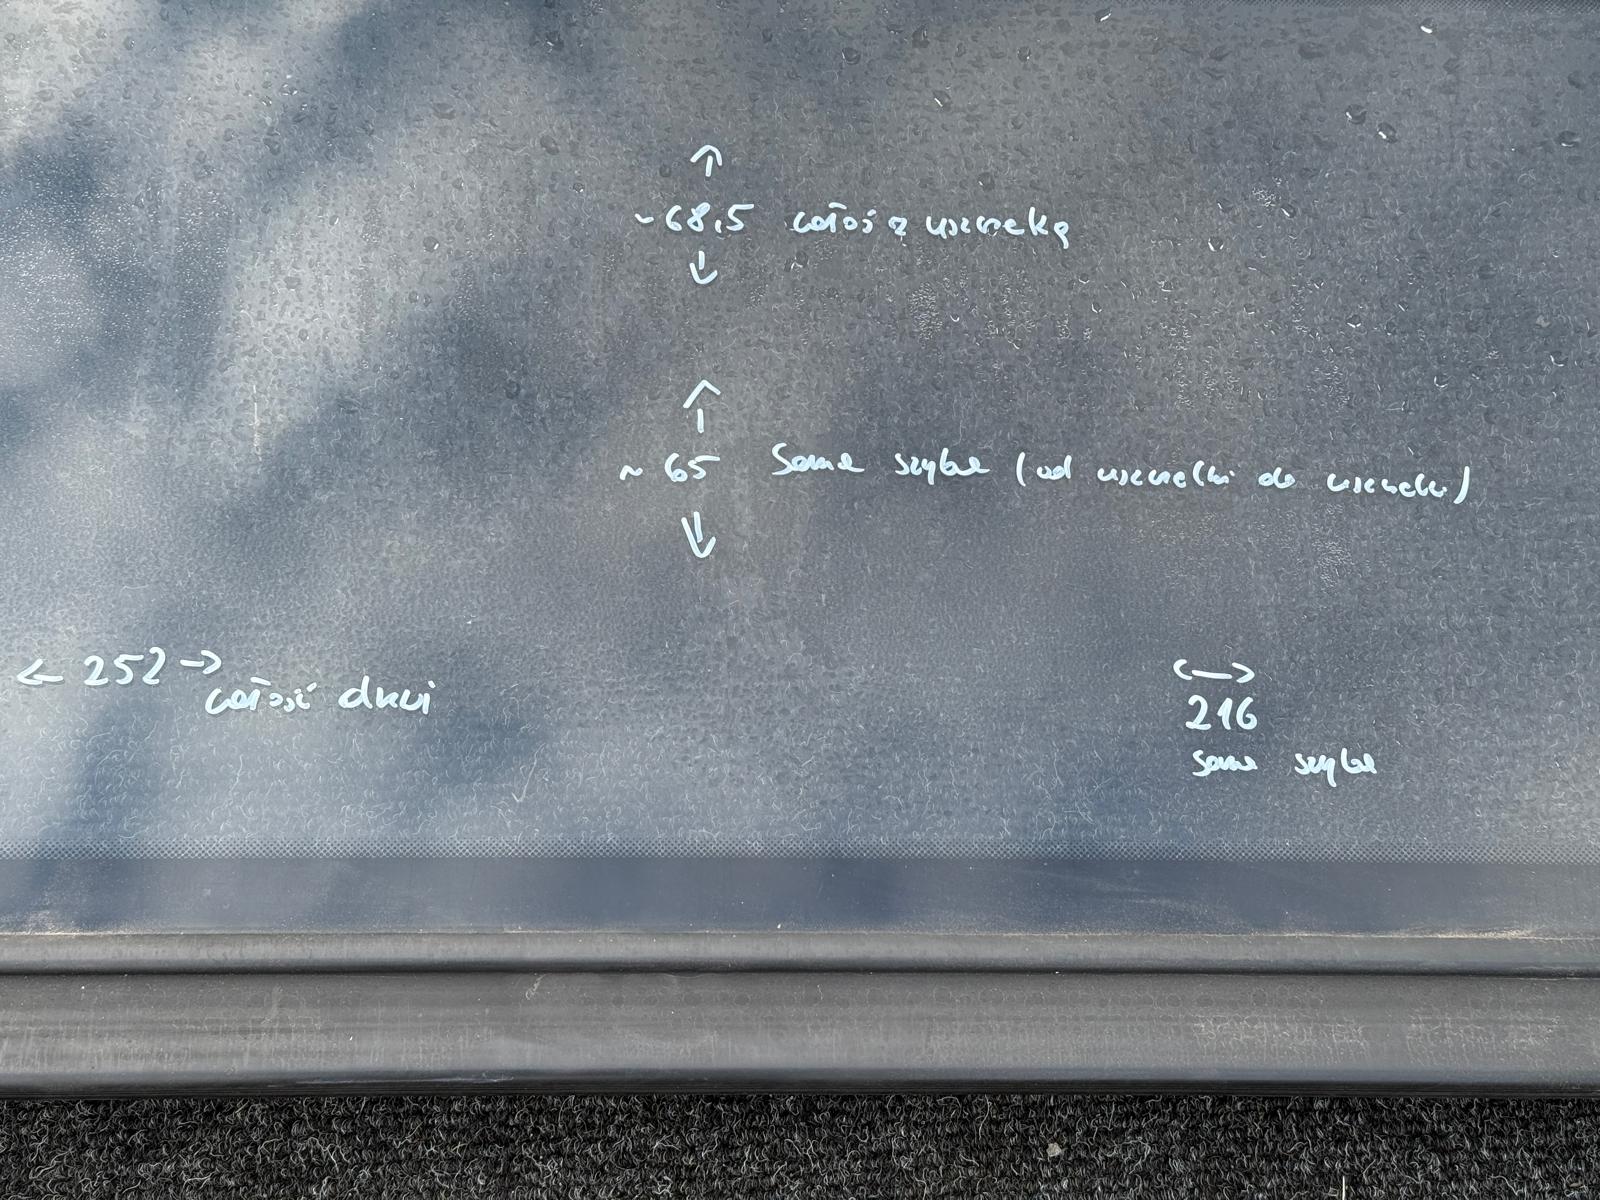 ~68,5 całość z uszczelką
~ 65 Sama szyba (od uszczelki do uszczelki)
← 252 →
całość drzwi
216
sama szyba